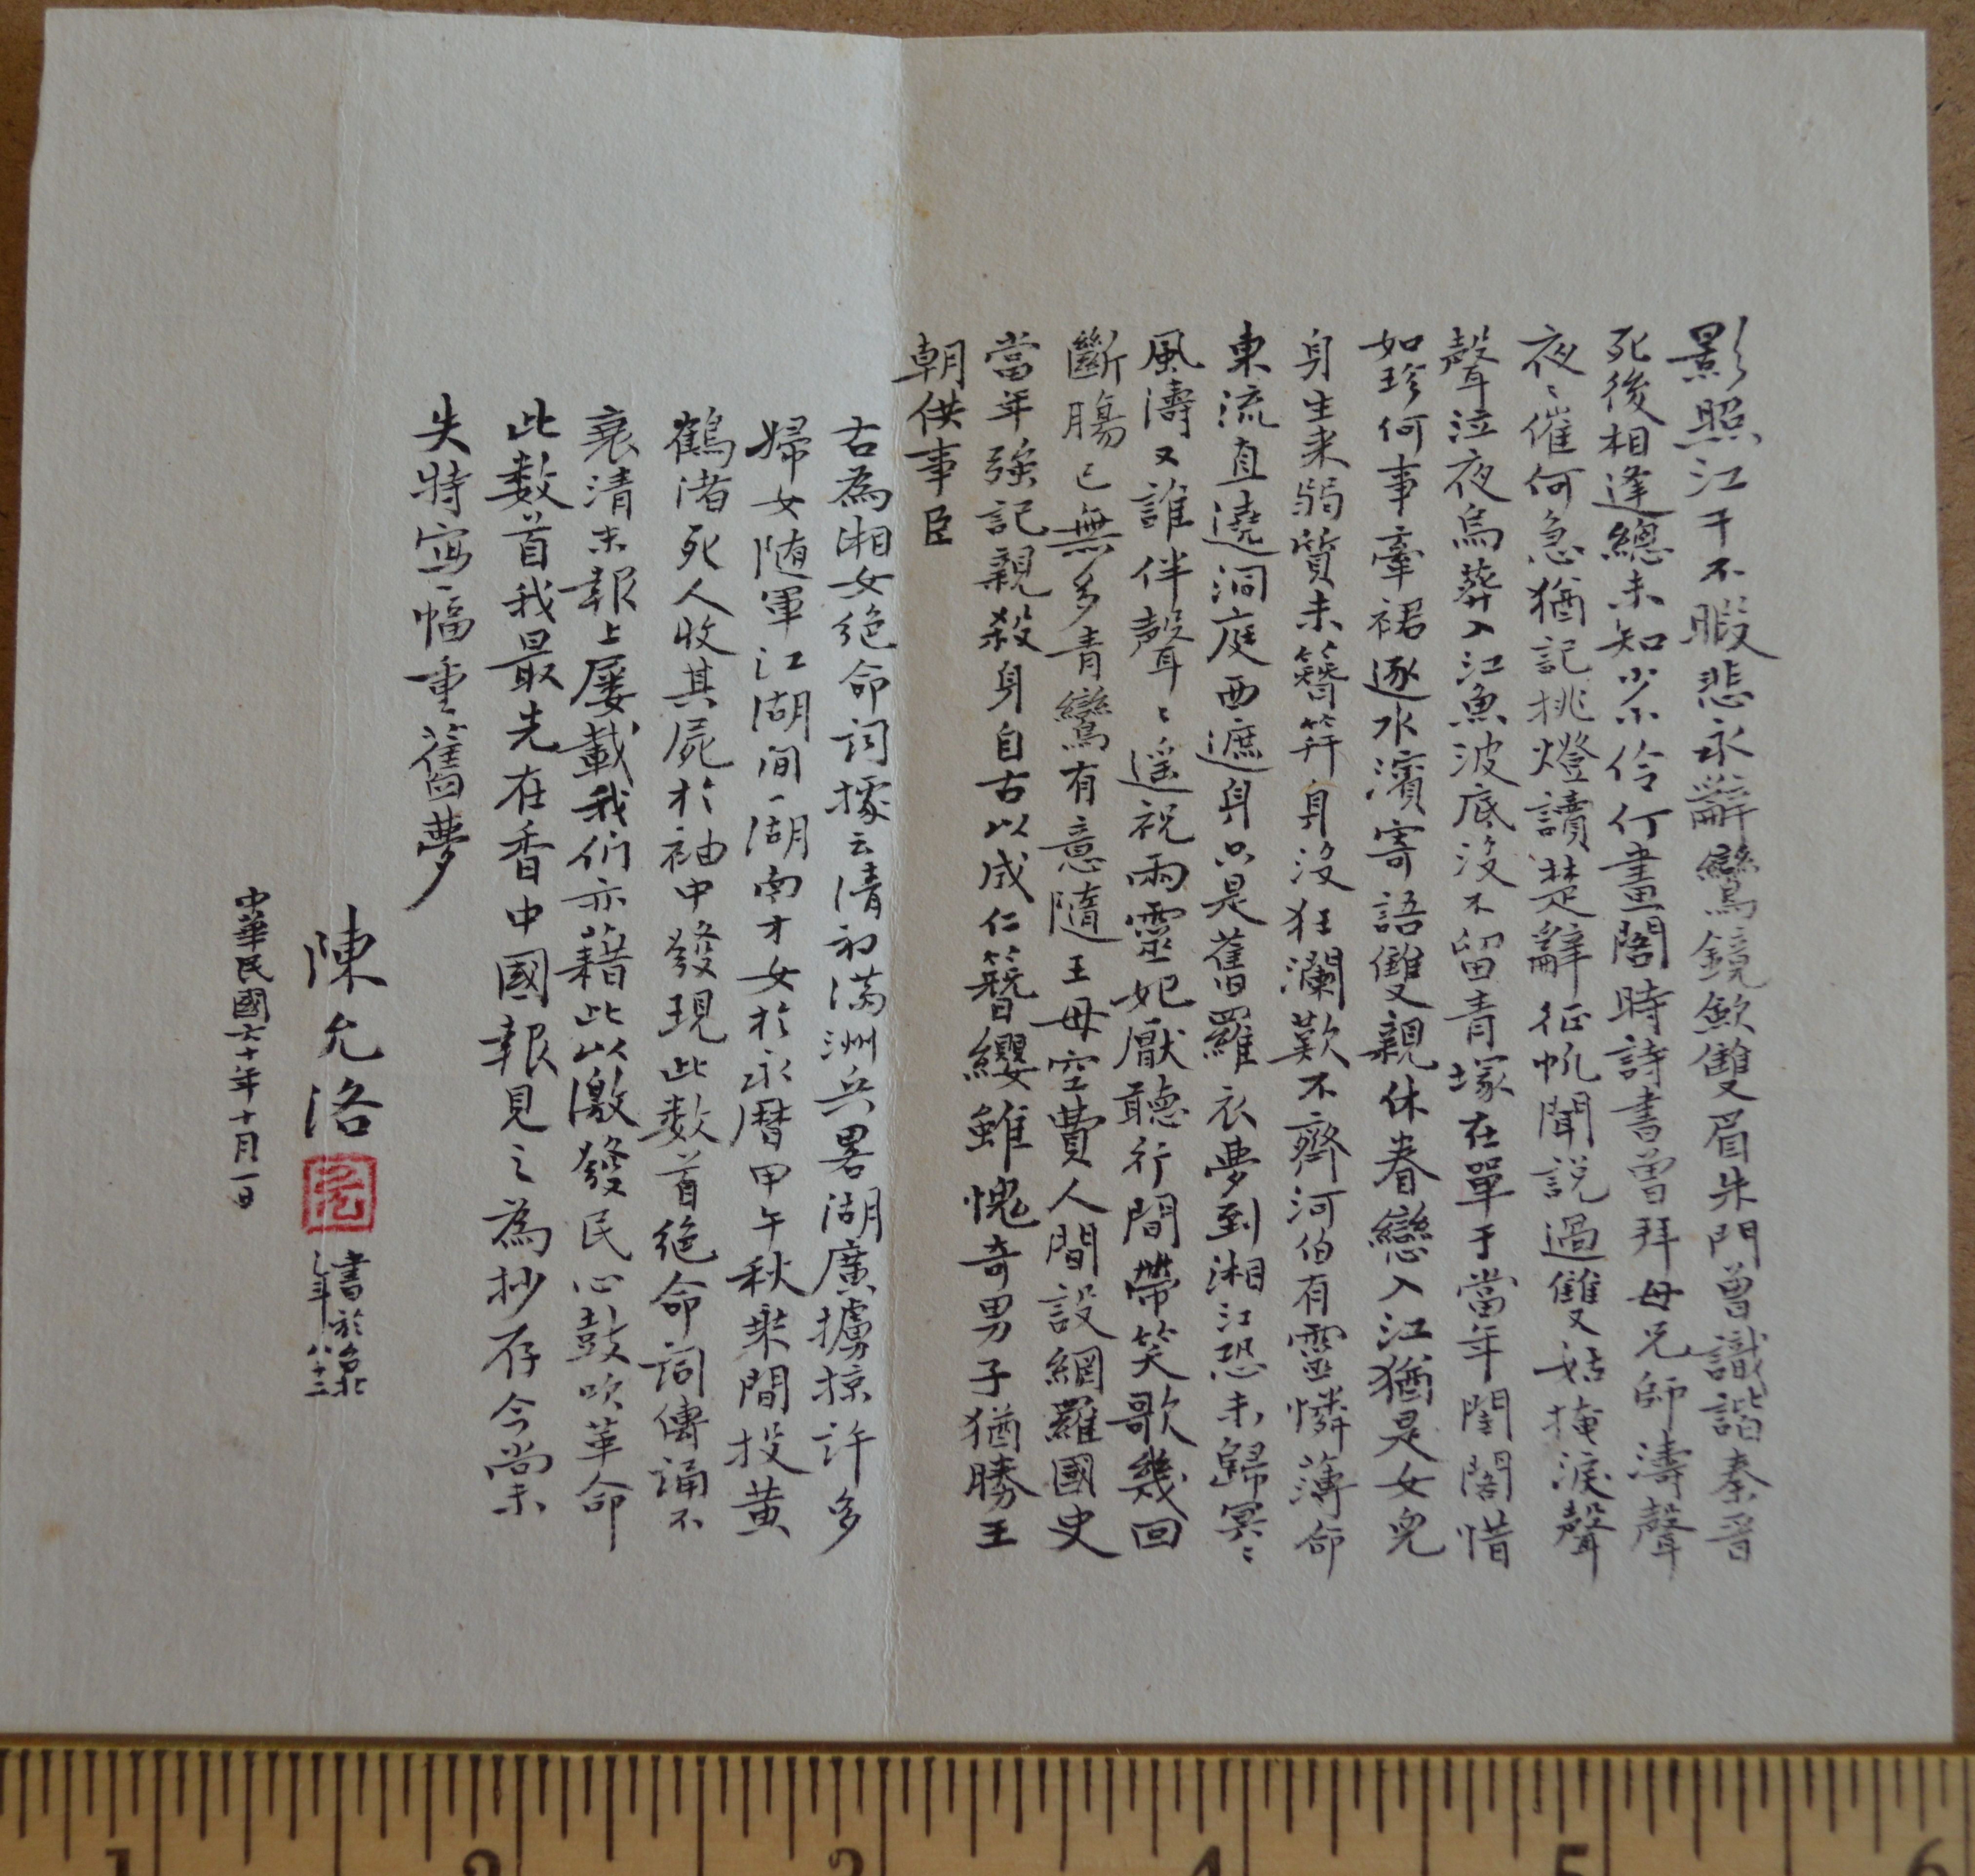 影照江干不暇悲永辭鸞鏡歛雙眉朱門曾識諧秦晉
死後相逢總未知少小伶仃畫閣時詩書曾拜母兄師濤聲
夜〻催何急猶記挑燈讀楚辭征帆聞說過雙姑掩淚聲
聲泣夜烏葬入江魚波底沒不留青塚在單于當年閨閣惜
如珍何事牽裙逐水濱寄語雙親休眷戀入江猶是女兒
身生來弱質未簪笄身沒狂瀾歎不齊河伯有靈憐薄命
東流直遶洞庭西遮身只是舊羅衣夢到湘江恐未歸冥〻
風濤又誰伴聲〻遥祝兩靈妃厭聽行間帶笑歌幾回
斷腸已無多青鸞有意隨王母空費人間設網羅國史
當年強記親殺身自古以成仁簪纓雖愧奇男子猶勝王
朝供事臣
古為湘女絕命詞據云清初滿洲兵畧湖廣擄掠許多
婦女随軍江湖间一湖南才女於永曆甲午秋乘間投黄
鶴渚死人收其屍於袖中發現此数首絕命詞傳誦不
衰清末報上屡載我们亦藉此以激發民心鼓吹革命
此数首我最先在香中國報見之為抄存今尚未
失特寫一幅重舊夢
陳允洛
書於臺北
年八十二
中華民國六十年十月一日